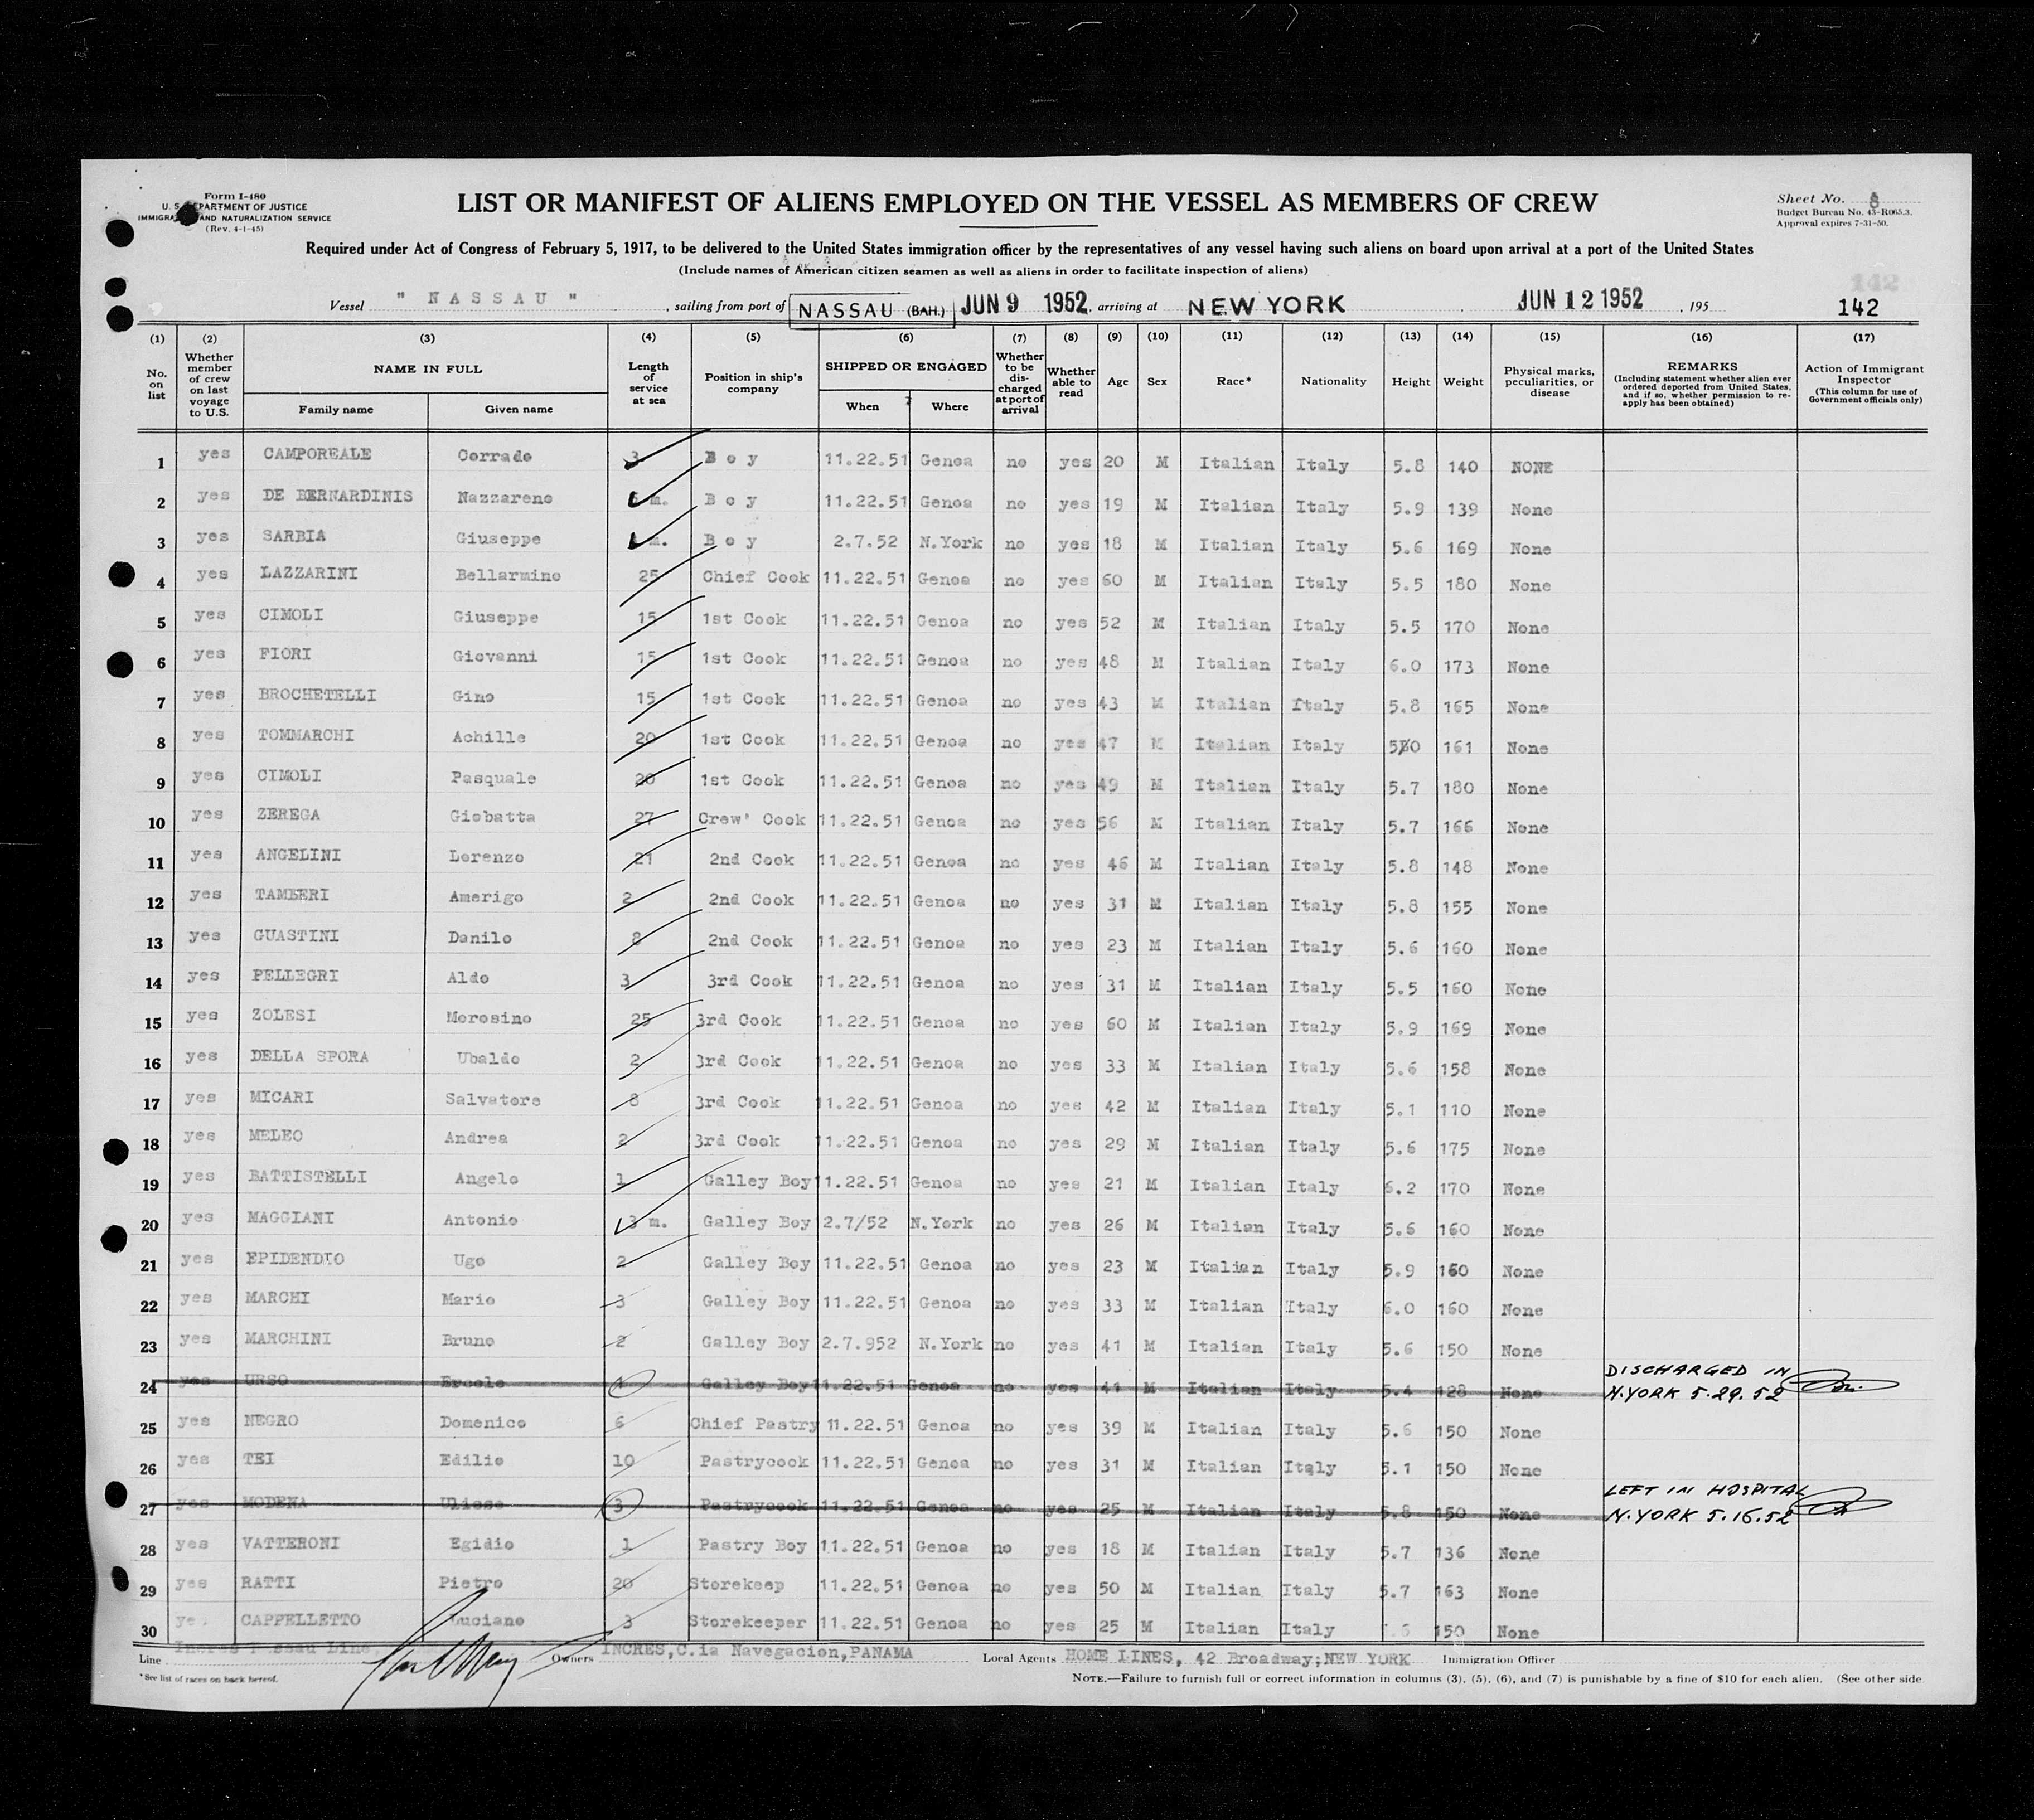 Form I-480
U. S. DEPARTMENT OF JUSTICE
IMMIGRATION AND NATURALIZATION SERVICE
(Rev. 4-1-45)
LIST OR MANIFEST OF ALIENS EMPLOYED ON THE VESSEL AS MEMBERS OF CREW
Sheet No. 8
Budget Bureau No. 43-R065.3.
Approval expires 7-31-50.
Required under Act of Congress of February 5, 1917, to be delivered to the United States immigration officer by the representatives of any vessel having such aliens on board upon arrival at a port of the United States
(Include names of American citizen seamen as well as aliens in order to facilitate inspection of aliens)
142
Vessel " NASSAU " , sailing from port of NASSAU (BAH.) JUN 9 1952, arriving at NEW YORK JUN 12 1952 , 195 142
(1) No. on list
(2) Whether member of crew on last voyage to U.S.
(3) NAME IN FULL Family name Given name
(4) Length of service at sea
(5) Position in ship's company
(6) SHIPPED OR ENGAGED When Where
(7) Whether to be discharged at port of arrival
(8) Whether able to read
(9) Age
(10) Sex
(11) Race*
(12) Nationality
(13) Height
(14) Weight
(15) Physical marks, peculiarities, or disease
(16) REMARKS (Including statement whether alien ever ordered deported from United States, and if so, whether permission to re-apply has been obtained)
(17) Action of Immigrant Inspector (This column for use of Government officials only)
1 yes CAMPOREALE Corrado 3 Boy 11.22.51 Genoa no yes 20 M Italian Italy 5.8 140 NONE
2 yes DE BERNARDINIS Nazzareno m. Boy 11.22.51 Genoa no yes 19 M Italian Italy 5.9 139 None
3 yes SARBIA Giuseppe m. Boy 2.7.52 N.York no yes 18 M Italian Italy 5.6 169 None
4 yes LAZZARINI Bellarmino 25 Chief Cook 11.22.51 Genoa no yes 60 M Italian Italy 5.5 180 None
5 yes CIMOLI Giuseppe 15 1st Cook 11.22.51 Genoa no yes 52 M Italian Italy 5.5 170 None
6 yes FIORI Giovanni 15 1st Cook 11.22.51 Genoa no yes 48 M Italian Italy 6.0 173 None
7 yes BROCHETELLI Gino 15 1st Cook 11.22.51 Genoa no yes 43 M Italian Italy 5.8 165 None
8 yes TOMMARCHI Achille 20 1st Cook 11.22.51 Genoa no yes 47 M Italian Italy 161 None
9 yes CIMOLI Pasquale 20 1st Cook 11.22.51 Genoa no yes 49 M Italian Italy 5.7 180 None
10 yes ZEREGA Giobatta 27 Crew' Cook 11.22.51 Genoa no yes 56 M Italian Italy 5.7 166 None
11 yes ANGELINI Lorenzo 21 2nd Cook 11.22.51 Genoa no yes 46 M Italian Italy 5.8 148 None
12 yes TAMBERI Amerigo 2 2nd Cook 11.22.51 Genoa no yes 31 M Italian Italy 5.8 155 None
13 yes GUASTINI Danilo 8 2nd Cook 11.22.51 Genoa no yes 23 M Italian Italy 5.6 160 None
14 yes PELLEGRI Aldo 3 3rd Cook 11.22.51 Genoa no yes 31 M Italian Italy 5.5 160 None
15 yes ZOLESI Morosino 25 3rd Cook 11.22.51 Genoa no yes 60 M Italian Italy 5.9 169 None
16 yes DELLA SPORA Ubaldo 2 3rd Cook 11.22.51 Genoa no yes 33 M Italian Italy 5.6 158 None
17 yes MICARI Salvatore 8 3rd Cook 11.22.51 Genoa no yes 42 M Italian Italy 5.1 110 None
18 yes MELEO Andrea 2 3rd Cook 11.22.51 Genoa no yes 29 M Italian Italy 5.6 175 None
19 yes BATTISTELLI Angelo 1 Galley Boy 11.22.51 Genoa no yes 21 M Italian Italy 6.2 170 None
20 yes MAGGIANI Antonio 3 m. Galley Boy 2.7/52 N.York no yes 26 M Italian Italy 5.6 160 None
21 yes EPIDENDIO Ugo 2 Galley Boy 11.22.51 Genoa no yes 23 M Italian Italy 5.9 160 None
22 yes MARCHI Mario 3 Galley Boy 11.22.51 Genoa no yes 33 M Italian Italy 6.0 160 None
23 yes MARCHINI Bruno 2 Galley Boy 2.7.952 N.York no yes 41 M Italian Italy 5.6 150 None
24 yes URSO Ercole 1 Galley Boy 11.22.51 Genoa no yes 41 M Italian Italy 5.4 128 None DISCHARGED IN N.YORK 5.29.52
25 yes NEGRO Domenico 6 Chief Pastry 11.22.51 Genoa no yes 39 M Italian Italy 5.6 150 None
26 yes TEI Edilio 10 Pastrycook 11.22.51 Genoa no yes 31 M Italian Italy 5.1 150 None
27 yes MODENA Ulisse 3 Pastrycook 11.22.51 Genoa no yes 25 M Italian Italy 5.8 150 None LEFT IN HOSPITAL N.YORK 5.16.52
28 yes VATTERONI Egidio 1 Pastry Boy 11.22.51 Genoa no yes 18 M Italian Italy 5.7 136 None
29 yes RATTI Pietro 20 Storekeep 11.22.51 Genoa no yes 50 M Italian Italy 5.7 163 None
30 CAPPELLETTO Luciano 3 Storekeeper 11.22.51 Genoa no yes 25 M Italian Italy 150 None
Line Incres Nassau Line Owners INCRES,C.ia Navegacion,PANAMA Local Agents HOME LINES, 42 Broadway;NEW YORK Immigration Officer
*See list of races on back hereof.
NOTE.—Failure to furnish full or correct information in columns (3), (5), (6), and (7) is punishable by a fine of $10 for each alien. (See other side